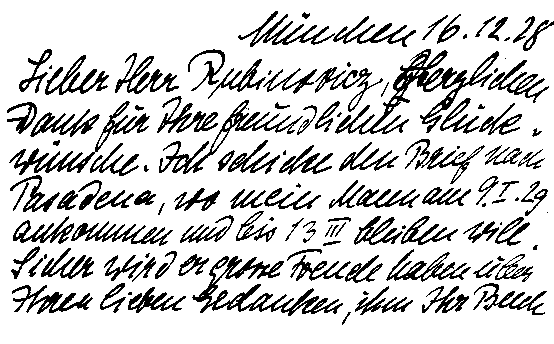 München 16.12.28
Lieber Herr Rubinowicz, Herzlichen
Dank für Ihre freundlichen Glück-
wünsche. Ich schicke den Brief nach
Pasadena, wo mein Mann am 9.I.29.
ankommen und bis 13 III bleiben will.
Sicher wird er grosse Freude haben über
Ihren lieben Gedanken, ihm Ihr Buch